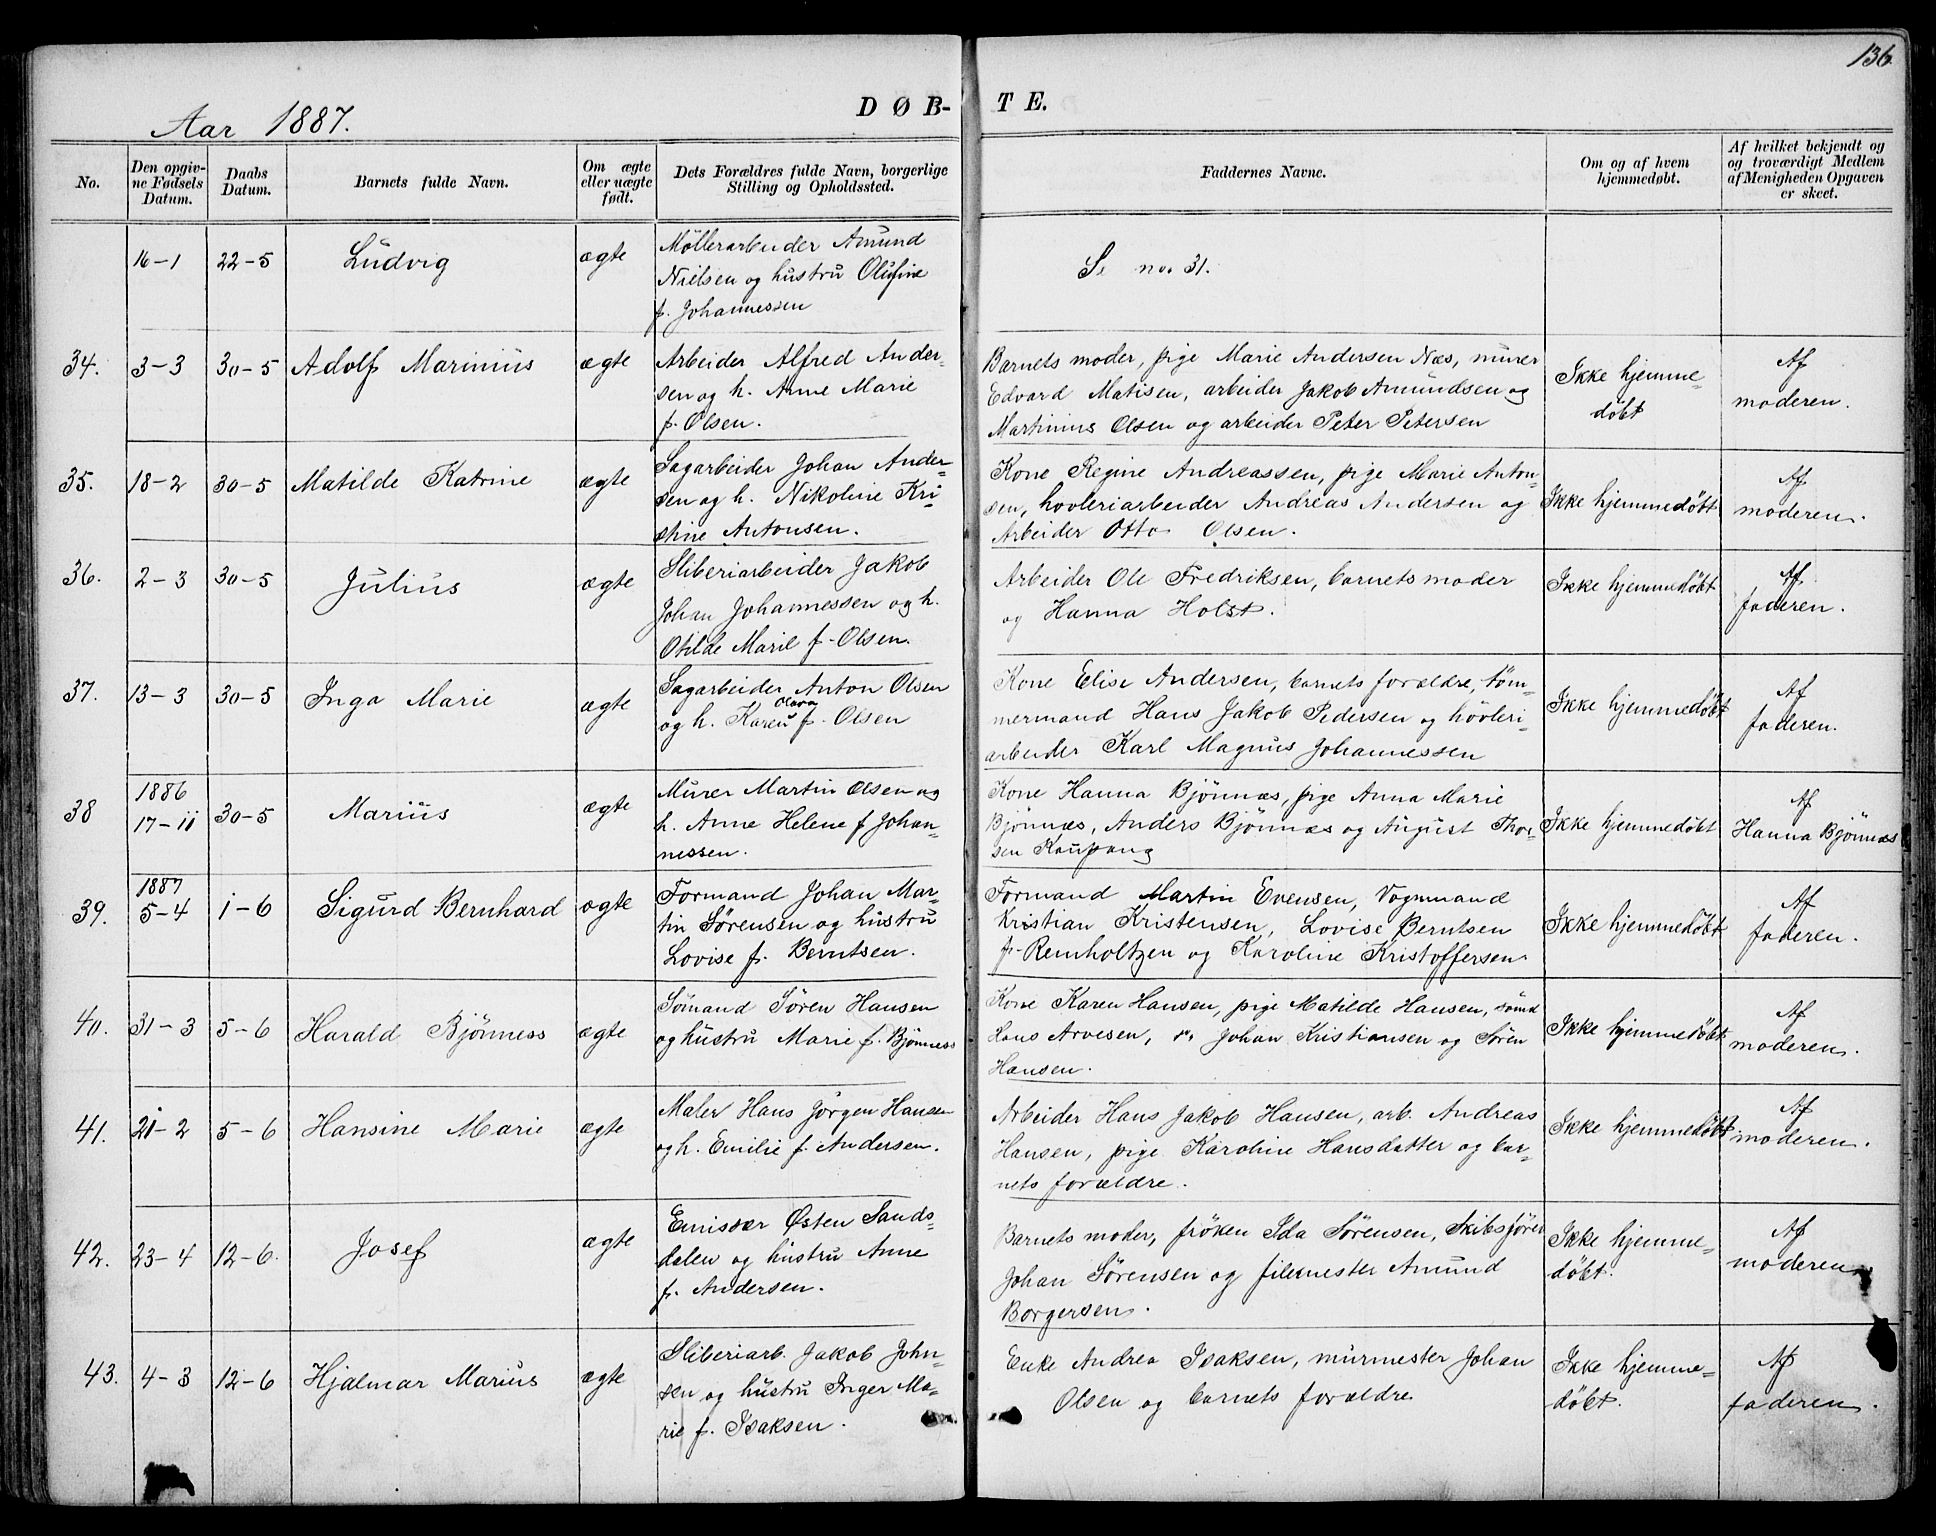 136
Aar 1887.
DØB-
TE.
No.
Den opgiv-
ne Fødsels
Datum.
Daabs
Datum.
Barnets fulde Navn.
Om ægte
eller uægte
født.
Dets Forældres fulde Navn, borgerlige
Stilling og Opholdssted.
Faddernes Navne.
Om og af hvem
hjemmedøbt.
Af hvilket bekjendt og
og troværdigt Medlem
af Menigheden Opgaven
er skeet.
16-1 22-5 Ludvig ægte
Møllerarbeider Amund
Nielsen og hustru Olufine
f. Johannessen
Se no. 31.
34. 3-3 30-5 Adolf Marinius ægte
Arbeider Alfred Ander-
sen og h. Anne Marie
f. Olsen.
Barnets moder, pige Marie Andersen Næs, murer
Edvard Matisen, arbeider Jakob Amundsen og
Martinius Olsen og arbeider Peter Petersen
Ikke hjemme-
døbt
Af
moderen.
35. 18-2 30-5 Matilde Katrine ægte
Sagarbeider Johan Ander-
sen og h. Nikoline Kri-
stine Antonsen.
Kone Regine Andreassen, pige Marie Anton-
sen, hovleriarbeider Andreas Andersen og
Arbeider Otto Olsen.
Ikke hjemmedøbt
Af
moderen.
36. 2-3 30-5 Julius ægte
Sliberiarbeider Jakob
Johan Johannessen og h.
Otilde Marie f. Olsen.
Arbeider Ole Fredriksen, barnets moder
og Hanna Holst.
Ikke hjemmedøbt
Af
faderen.
37. 13-3 30-5 Inga Marie ægte
Sagarbeider Anton Olsen
Olava
og h. Karen f. Olsen
Kone Elise Andersen, barnets forældre, tøm-
mermand Hans Jakob Pedersen og høvleri-
arbeider Karl Magnus Johannessen
Ikke hjemmedøbt
Af
faderen.
1886
38 17-11 30-5 Marius ægte
Murer Martin Olsen og
h. Anne Helene f. Johan-
nessen.
Kone Hanna Bjönnæs, pige Anna Marie
Bjönnæs, Anders Bjönnæs og August Thor-
sen Kaupang
Ikke hjemmedøbt
Af
Hanna Bjönnæs
1887
39. 5-4 1-6 Sigurd Bernhard ægte
Formand Johan Mar-
tin Sørensen og hustru
Lovise f. Berntsen.
Formand Martin Evensen, Vognmand
Kristian Kristensen, Lovise Berntsen
f. Reinholtzen og Karoline Kristoffersen
Ikke hjemmedøbt
Af
faderen.
40. 31-3 5-6 Harald Bjönness ægte
Sømand Søren Hansen
og hustru Marie f. Bjönness
Kone Karen Hansen, pige Matilde Hansen, sømd
Hans Arvesen, " Johan Kristiansen og Søren
Hansen.
Ikke hjemmedøbt
Af
moderen.
41. 21-2 5-6 Hansine Marie ægte
Maler Hans Jørgen Hansen
og h. Emilie f. Andersen.
Arbeider Hans Jakob Hansen, arb. Andreas
Hansen, pige Karoline Hansdatter og bar-
nets forældre.
Ikke hjemmedøbt
Af
moderen.
42. 23-4 12-6. Josef ægte
Emissær Østen Sands-
dalen og hustru Anne
f. Andersen.
Barnets moder, frøken Ida Sørensen, Skibsfører
Johan Sørensen og filemester Amund
Borgersen.
Ikke hjemme-
døbt.
Af
moderen
43. 4-3 12-6 Hjalmar Marius ægte
Sliberiarb. Jakob John-
sen og hustru Inger Ma-
rie f. Isaksen.
Enke Andrea Isaksen, murmester Johan
Olsen og barnets forældre
Ikke hjemme-
døbt.
Af
faderen.